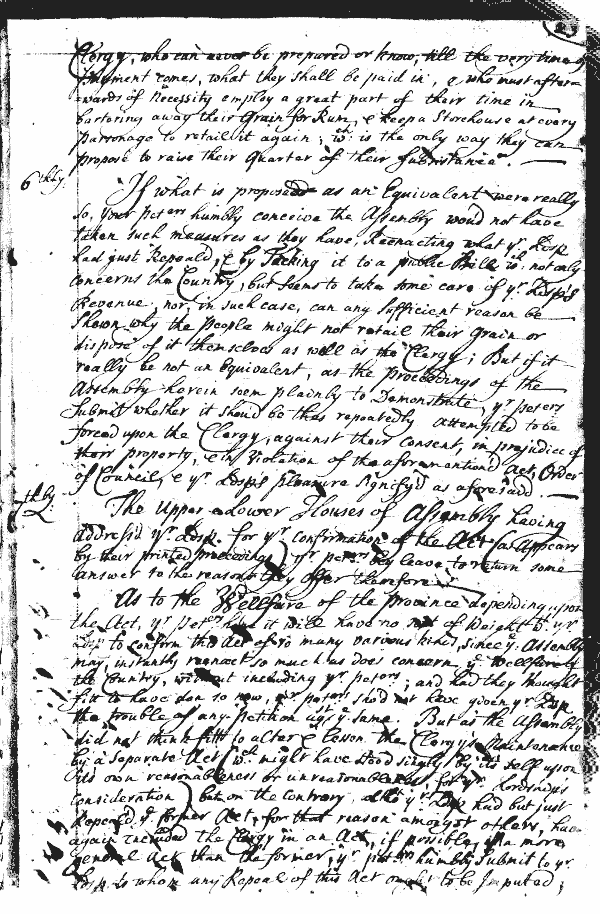 23
Clergy, who can never be prepared or know, till the very time of
Payment comes, what they shall be paid in, & who must after=
wards of Necessity employ a great part of their time in
bartoring away their Grain for Rum, & keep a Storehouse at every
Parsonage to retail it again; wch. is the only way they can
propose to raise their Quarter of their Subsistance.
6thly.
If what is proposed as an Equivalent were really
So, your peters humbly conceive the Assembly woud not have
taken such measures as they have, Reenacting what yr. Ldsp
had just Repeald, & by Tacking it to a publc Bill wch. not only
concerns the Country, but seems to take some care of yr. Ldsp's
Revenue, nor, in such case, can any sufficient reason be
Shown why the people might not retail their Grain or
dispose of it themselves as well as the Clergy; But if it
really be not an Equivalent, as the proceedings of the
Assembly herein seem plainly to Demonstrate, yr peters
Submit whether it shoud be thus repeatedly attempted to be
forced upon the Clergy, against their Consent, in prejudice of
their property, & in Violation of the aforementiond Act, Order
of Council, & yr. Ldsps pleasure Signifyd as aforesaid.
7thly.
The Upper & Lower Houses of Assembly having
address'd yr. Ldsp. for yr confirmation of the Act (as Appears
by their printed proceedings) yr peters beg leave to return some
answer to the reasons they offer therefore.
As to the Wellfare of the province depending upon
the Act, yr peters hope it will have no weight wth yr
Ldsp to confirm this Act of so many various kinds, since ye. Assembly
may, instantly reenact so much as does concern ye Wellfare of
the Country, without including yr peters; and had they thought
fitt to have don so now, yr peters shod not have given yr Ldsp
the trouble of any petition agst ye same. But as the Assembly
did not think fitt to alter & lessen the Clergy's Maintenance
by a separate Act (wch. might have stood singly by its self upon
its own reasonableness or unreasonableness for yr Lordships
consideration) but on the contrary, altho yr Ldsp had but just
Repeald ye former Act, for that reason amongst others, have
again included the Clergy in an Act, if possible, of a more
general Act than the former, yr peters humbly Submit to yr
Ldsp to whom any Repeal of this Act ought to be Imputed;